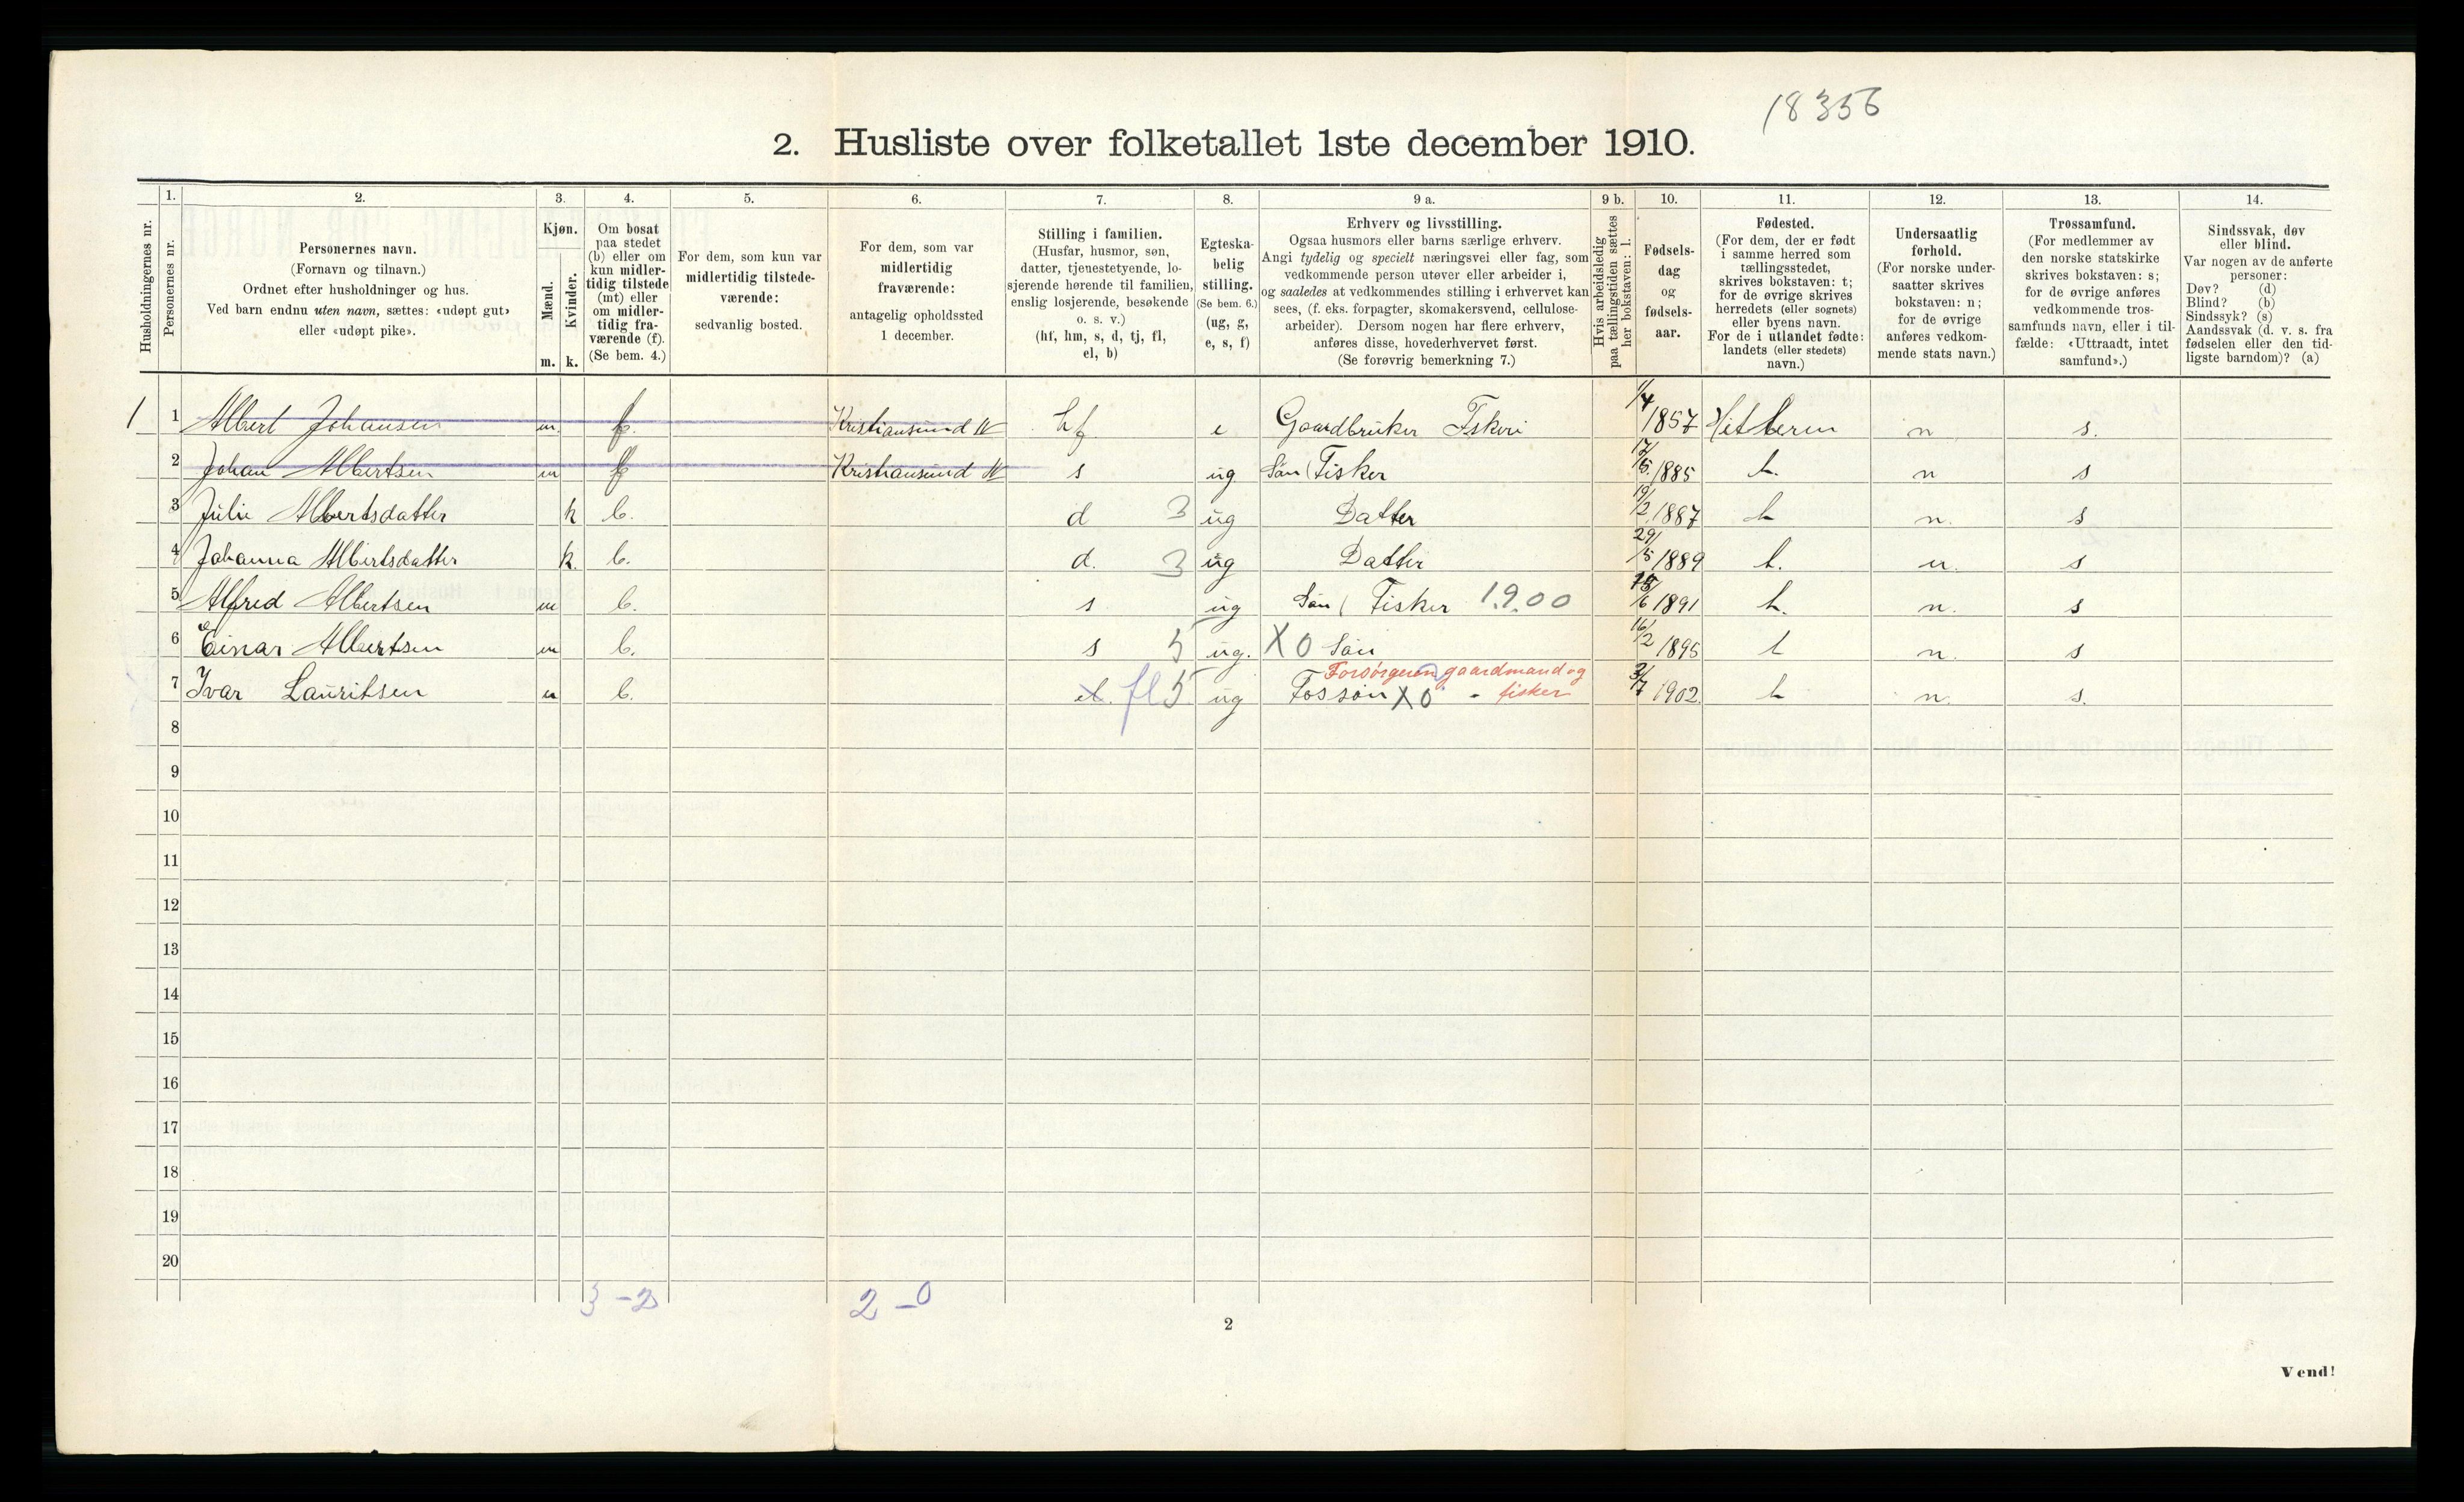 18356
2. Husliste over folketallet 1ste december 1910.
Husholdningernes nr.
1.
Personernes nr.
2.
Personernes navn.
(Fornavn og tilnavn.)
Ordnet efter husholdninger og hus.
Ved barn endnu uten navn, sættes: «udøpt gut»
eller «udøpt pike».
3.
Kjøn.
Mænd.
m.
Kvinder.
k.
4.
Om bosat
paa stedet
(b) eller om
kun midler-
tidig tilstede
(mt) eller
om midler-
tidig fra-
værende (f).
(Se bem. 4.)
5.
For dem, som kun var
midlertidig tilstede-
værende:
sedvanlig bosted.
6.
For dem, som var
midlertidig
fraværende:
antagelig opholdssted
1 december.
7.
Stilling i familien.
(Husfar, husmor, søn,
datter, tjenestetyende, lo-
sjerende hørende til familien,
enslig losjerende, besøkende
o. s. v.)
(hf, hm, s, d, tj, fl,
el, b)
8.
Egteska-
belig
stilling.
(Se bem. 6.)
(ug, g,
e, s, f)
9 a.
Erhverv og livsstilling.
Ogsaa husmors eller barns særlige erhverv.
Angi tydelig og specielt næringsvei eller fag, som
vedkommende person utøver eller arbeider i,
og saaledes at vedkommendes stilling i erhvervet kan
sees, (f. eks. forpagter, skomakersvend, cellulose-
arbeider). Dersom nogen har flere erhverv,
anføres disse, hovederhvervet først.
(Se forøvrig bemerkning 7.)
9 b.
Hvis arbeidsledig
paa tællingstiden sættes
her bokstaven: l.
10.
Fødsels-
dag
og
fødsels-
aar.
11.
Fødested.
(For dem, der er født
i samme herred som
tællingsstedet,
skrives bokstaven: t;
for de øvrige skrives
herredets (eller sognets)
eller byens navn.
For de i utlandet fødte:
landets (eller stedets)
navn.)
12.
Undersaatlig
forhold.
(For norske under-
saatter skrives
bokstaven: n;
for de øvrige
anføres vedkom-
mende stats navn.)
13.
Trossamfund.
(For medlemmer av
den norske statskirke
skrives bokstaven: s;
for de øvrige anføres
vedkommende tros-
samfunds navn, eller i til-
fælde: «Uttraadt, intet
samfund».)
14.
Sindssvak, døv
eller blind.
Var nogen av de anførte
personer:
Døv? (d)
Blind? (b)
Sindssyk? (s)
Aandssvak (d. v. s. fra
fødselen eller den tid-
ligste barndom)? (a)
1 1 Albert Johansen m. f. Kristiansund N hf e Gaardbruker Fskeri 1/4 1857 Hitteren n s.
2 Johan Albertsen m f Kristiansund N s ug Søn ( Fisker 17/5. 1885 t. n s
3 Julie Albertsdatter k b. d 3 ug Datter 19/2 1887 t n. s
4 Johanna Albertsdatter k. b. d. 3 ug Datter 29/5 1889 t. n. s
5 Alfred Albertsen m b. s ug Søn ( Fisker 1.9.00 /6 1891 t. n. s
6 Einar Albertsen m b. s 5 ug. X 0 Søn 16/2 1895 t n. s
Forsørgeren gaardmand og
7 Ivar Lauritsen m b. el. fl 5 ug Fos søn X 0 - fisker 2/7 1902. t n. s.
8
9
10
11
12
13
14
15
16
17
18
19
20
3 - 2 2 - 0
2
Vend!